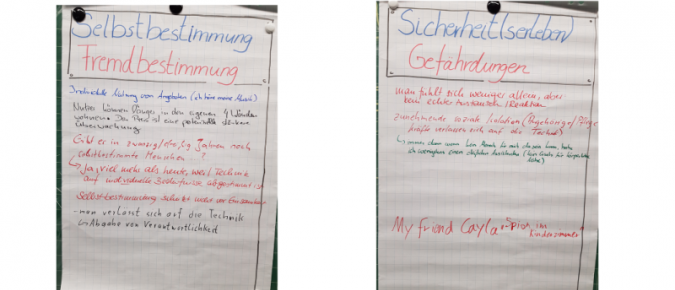 Selbstbestimmung
Fremdbestimmung
Individuelle Nutzung von Angeboten (ich höre meine Musik)
Nutzer können länger in den eigenen 4 Wänden
wohnen. Der Preis ist eine potentielle stärkere
Überwachung
Gibt es in zwanzig/dreißig Jahren noch
selbstbestimmte Menschen?
↳ Ja, viel mehr als heute, weil Technik
auf individuelle Bedürfnisse abgestimmt ist
Selbstbestimmung
- man verlässt sich auf die Technik
Abgabe von Verantwortlichkeit
Sicherheit(serleben)
Gefährdungen
man fühlt sich weniger allein, aber
kein echter Austausch / Reaktion
zunehmende soziale Isolation (Angehörige/Pflege
kräfte verlassen sich auf die Technik)
My friend Cayla Spion im
Kinderzimmer